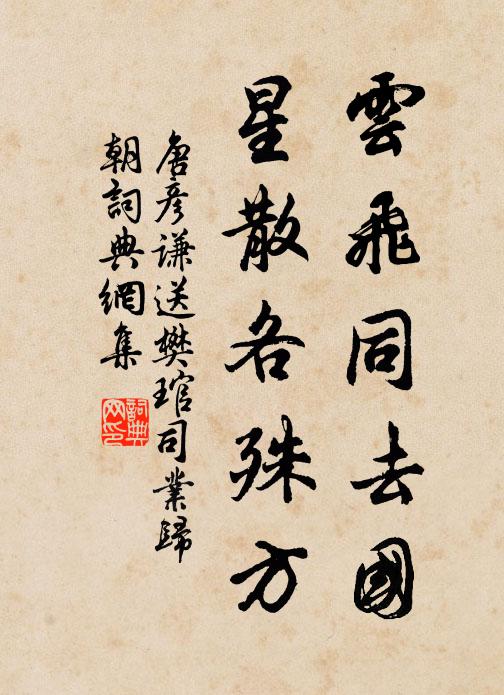 雲飛同去國
星散各殊方
唐彥謙送樊琯司業歸
朝詞典網集
詞典网印